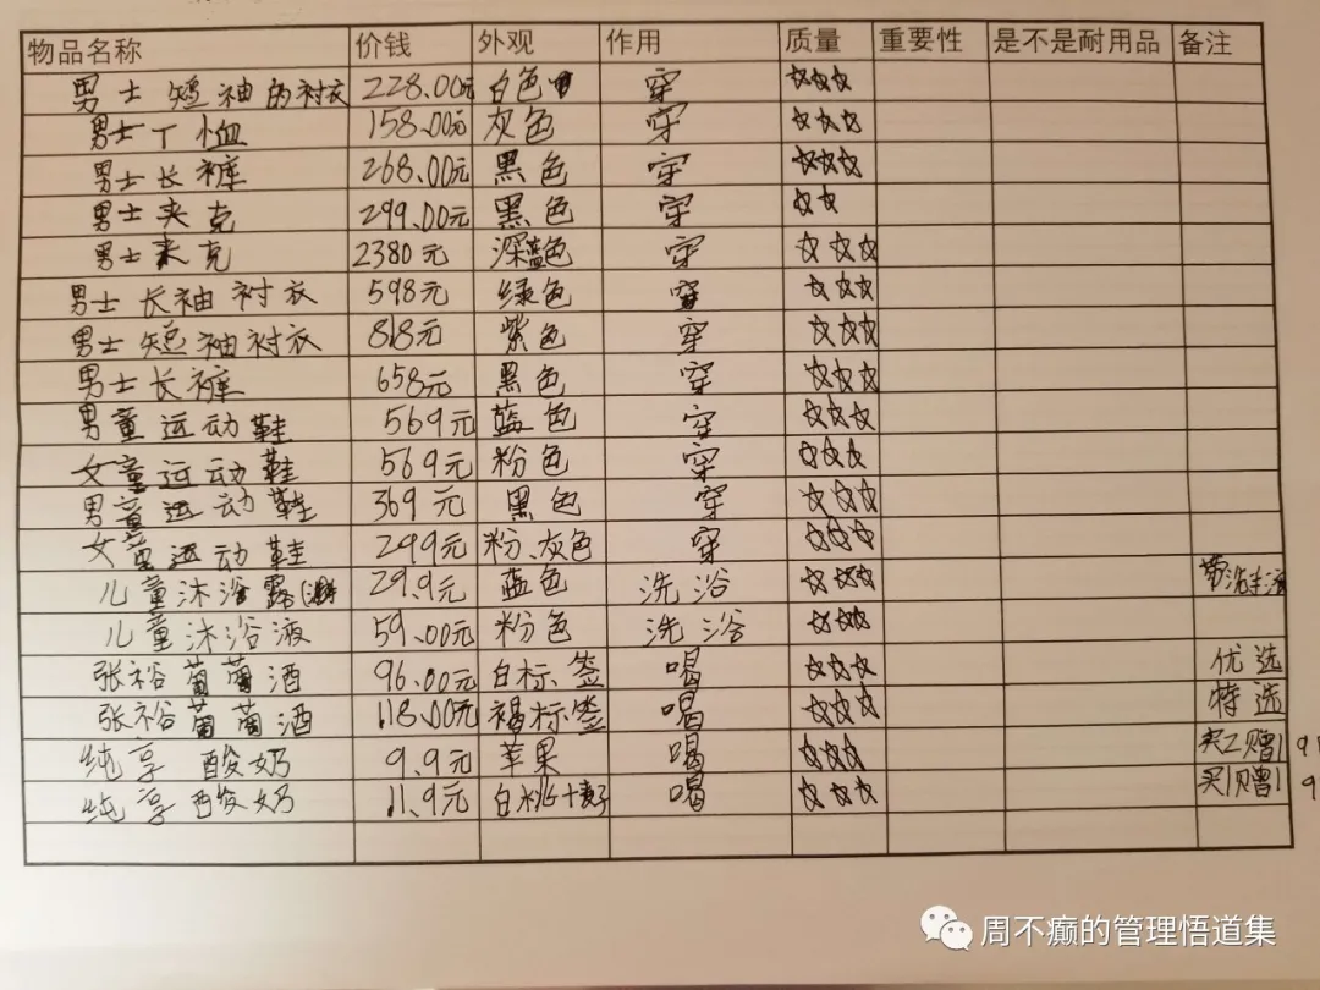 物品名称 价钱 外观 作用 质量 重要性 是不是耐用品 备注
男士短袖的衬衣 228.00元 白色 穿 ☆☆☆
男士T恤 158.00元 灰色 穿 ☆☆☆
男士长裤 268.00元 黑色 穿 ☆☆☆
男士夹克 299.00元 黑色 穿 ☆☆
男士夹克 2380元 深蓝色 穿 ☆☆☆
男士长袖衬衣 598元 绿色 穿 ☆☆☆
男士短袖衬衣 818元 紫色 穿 ☆☆☆
男士长裤 658元 黑色 穿 ☆☆☆
男童运动鞋 569元 蓝色 穿 ☆☆☆
女童运动鞋 569元 粉色 穿 ☆☆☆
男童运动鞋 369元 黑色 穿 ☆☆☆
女童运动鞋 299元 粉、灰色 穿 ☆☆☆
儿童沐浴露 29.9元 蓝色 洗浴 ☆☆☆ 带洗手液
儿童沐浴液 59.00元 粉色 洗浴 ☆☆☆
张裕葡萄酒 96.00元 白标签 喝 ☆☆☆ 优选
张裕葡萄酒 118.00元 褐标签 喝 ☆☆☆ 特选
纯享酸奶 9.9元 苹果 喝 ☆☆☆ 买2赠1
纯享酸奶 11.9元 白桃+麦子 喝 ☆☆☆ 买1赠1
周不癫的管理悟道集